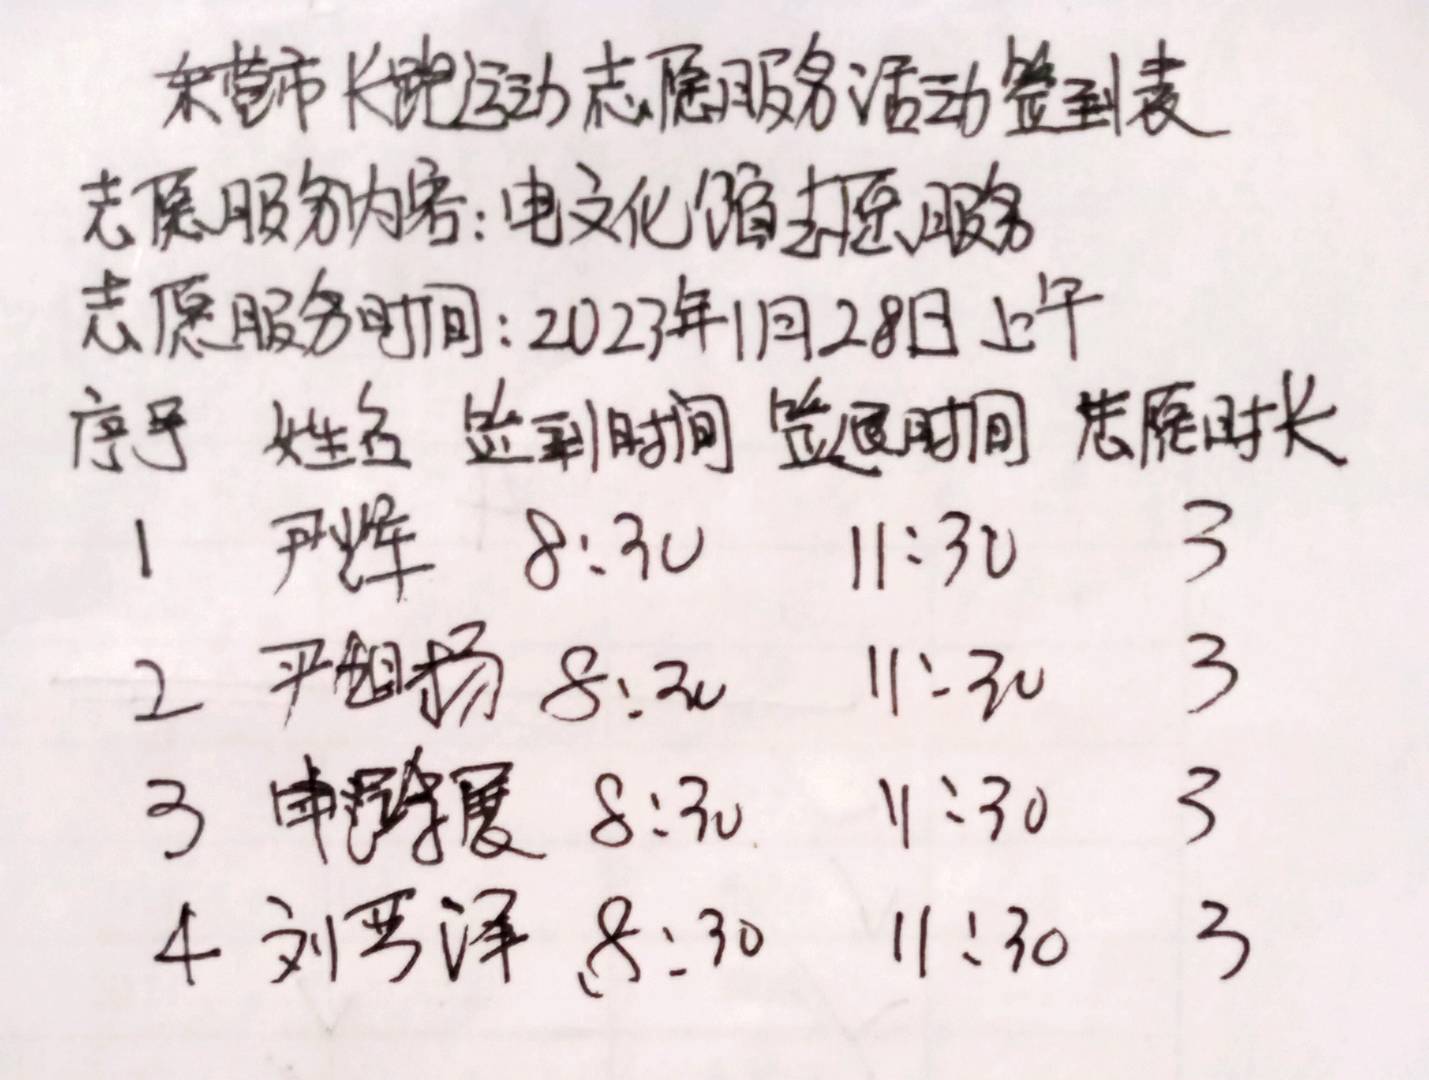 东营市长跑运动志愿服务活动签到表
志愿服务内容:电文化馆志愿服务
志愿服务时间:2023年11月28日上午
序号 姓名 签到时间 签退时间 志愿时长
1 尹辉 8:30 11:30 3
2 尹旭扬 8:30 11:30 3
3 8:30 11:30 3
4 刘晋泽 8:30 11:30 3